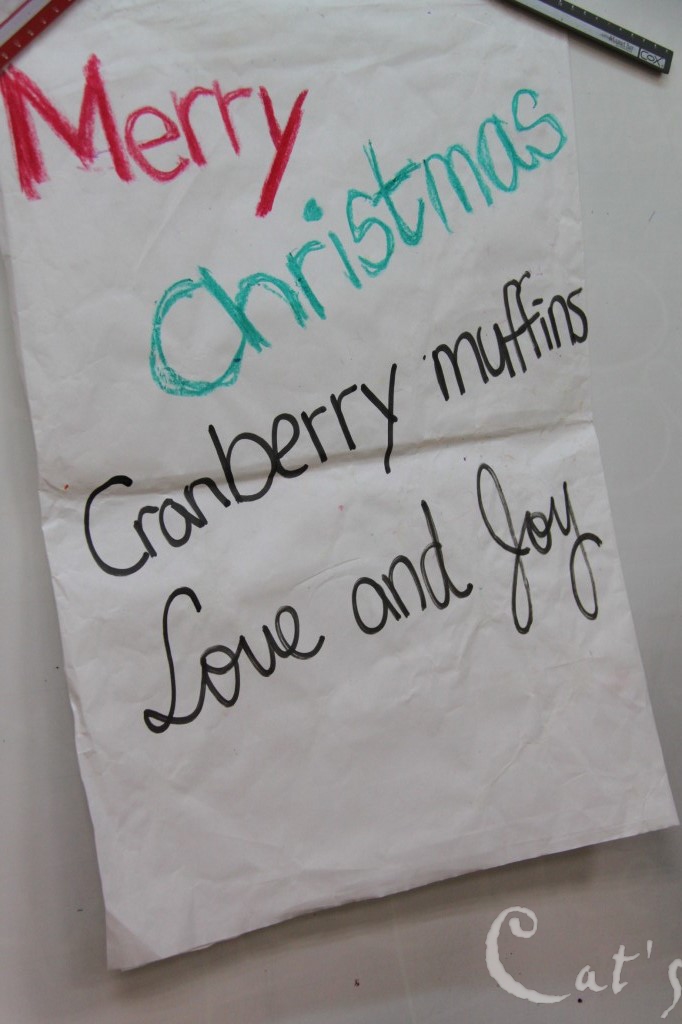 COX
Merry
Christmas
Cranberry muffins
Love and Joy
Cat's